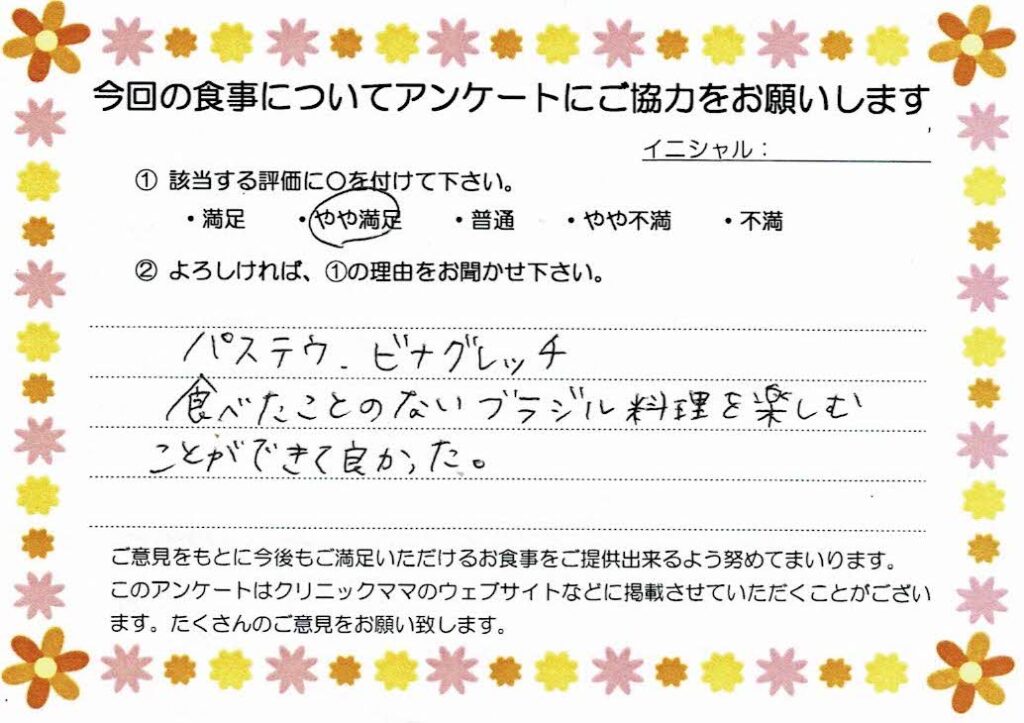 今回の食事についてアンケートにご協力をお願いします
イニシャル：
① 該当する評価に〇を付けて下さい。
・満足　・やや満足　・普通　・やや不満　・不満
② よろしければ、①の理由をお聞かせ下さい。
パステウ、ビナグレッチ
食べたことのないブラジル料理を楽しむ
ことができて良かった。
ご意見をもとに今後もご満足いただけるお食事をご提供出来るよう努めてまいります。
このアンケートはクリニックママのウェブサイトなどに掲載させていただくことがござい
ます。たくさんのご意見をお願い致します。